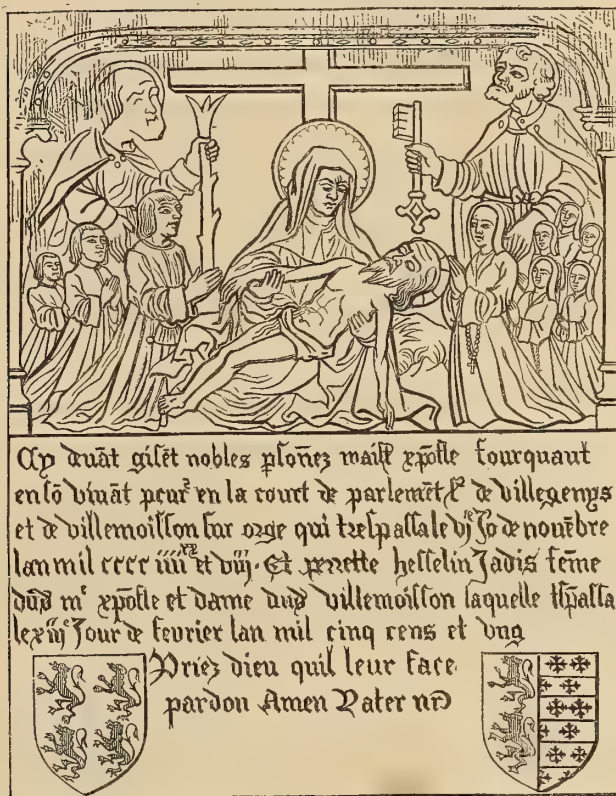 Cy devāt gisēt nobles psoñez maistʳ xp̄ofle fourquaut
en sō vivāt pcurʳ en la court de parlemēt sʳ de villegenys
et de villemoisson sur orge qui trespassa le vjᵉ Jo de novēbre
lan mil cccc iiiiˣˣ et viij. Et perrette hesselin Jadis fēme
dud mᵉ xp̄ofle et dame dud villemoisson laquelle tspassa
le xiijᵉ Jour de fevrier lan mil cinq cens et ung
Priez dieu quil leur face
pardon Amen Pater nr̄